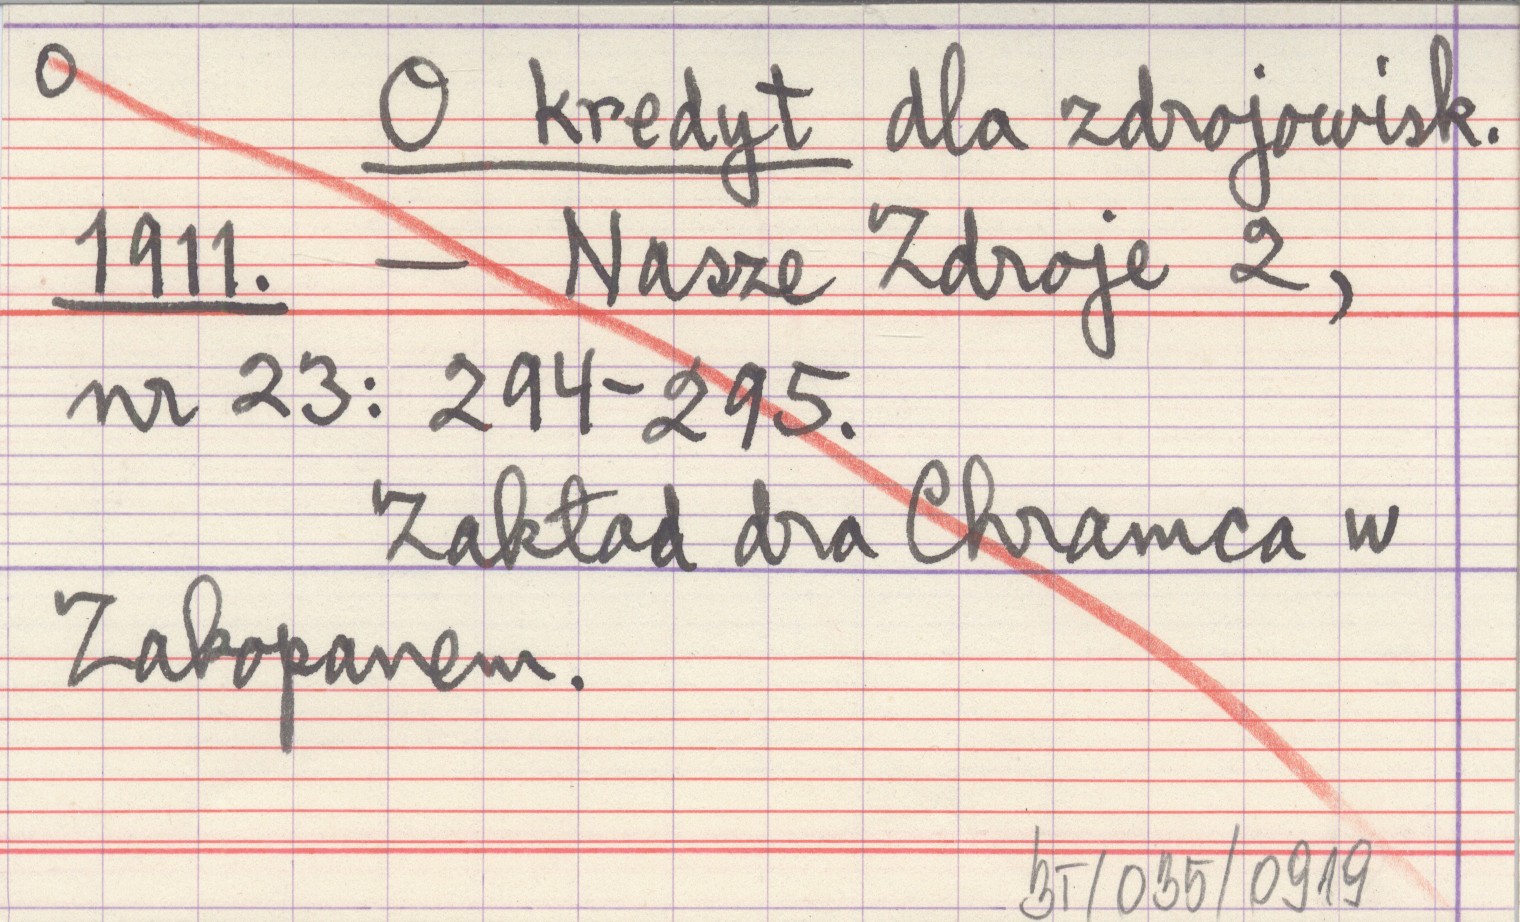 O
O kredyt dla zdrojowisk.
1911. — Nasze Zdroje 2,
nr 23: 294-295.
Zakład dra Chramca w
Zakopanem.
BT/035/0919